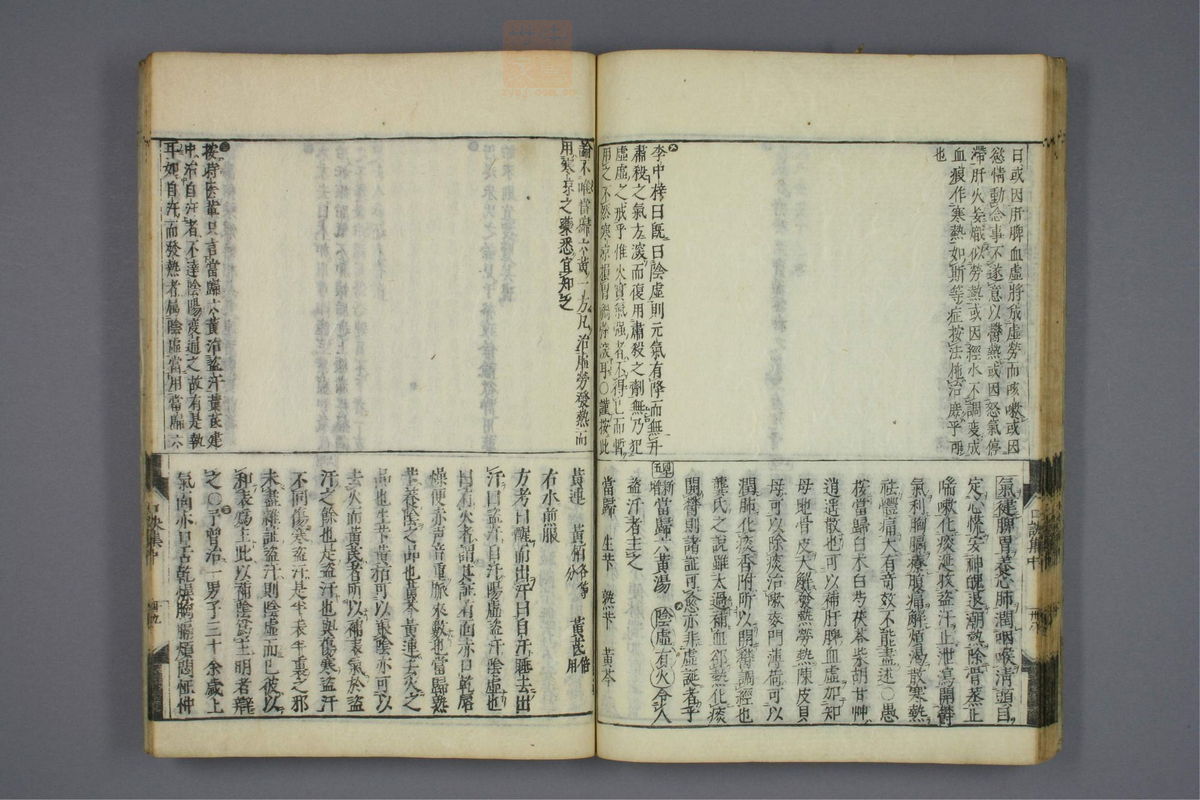 曰或因肝脾血虛將成虛勞而咳嗽或因
慾情動念事不遂意以鬱熱或因怒氣停
滯肝火妄熾似勞熱或因經水不調変成
血瘕作寒熱如斯等症按法施治庶乎可
也
李中梓曰既曰陰虛則元氣有降而無升
肅殺之氣方深而復用肅殺之劑無乃犯
虛虛之戒乎惟火實氣强者不得已而暫
用之不然寒涼損胃禍將深耳○謹按此
氣健脾胃養心肺潤咽喉清頭目
定心慌安神魄退潮熱除骨蒸止
喘嗽化痰涎收盜汗止泄瀉開鬱
氣利胸膈療腹痛解煩渴散寒熱
祛體痛大有奇效不能盡述○愚
按當歸白朮白芍茯苓柴胡甘艸
逍遥散也可以補肝脾血虛加知
母地骨皮大解發熱勞熱陳皮貝
母可以除痰治嗽麥門薄荷可以
潤肺化痰香附所以開鬱調經也
龔氏之說雖太過補血郤熱化痰
開鬱則諸証可愈亦非虛誕者乎
新增當歸六黃湯 陰虛有火令人
盜汗者主之
當歸 生芐 熟芐 黃芩
論不唯當歸六黃一方凡治虛勞發熱而
用寒涼之藥悉宜知之
按時医輩只言當歸六黃治盜汗黃芪建
中治自汗者不達陰陽変通之故有是執
耳如自汗而發熱者屬陰虛當用當歸六
黃連 黃栢各等分 黃芪倍用
右水煎服
方考曰醒而出汗曰自汗睡去出
汗曰盜汗自汗陽虛盜汗陰虛也
曰有火者謂其証有面赤口乾唇
燥便赤声音重脉來數也當歸熟
芐養陰之品也黃芩黃連去火之
品也生芐黃栢可以養陰亦可以
去火而黃芪者所以補表氣於盜
汗之餘也是盜汗也與傷寒盜汗
不同傷寒盜汗是半表半裏之邪
未盡雜証盜汗則陰虛而已彼以
和表爲主此以補陰爲主明者辨
之○予曾治一男子三十余歲上
氣面赤口舌乾燥胸膈煩悶怔忡